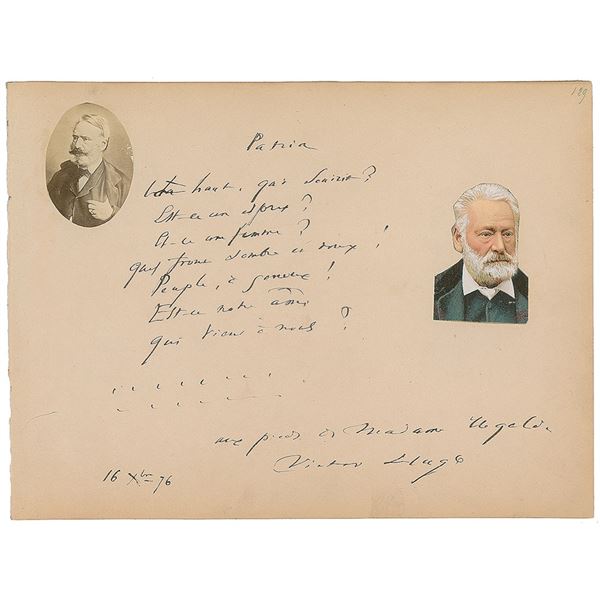 Patria
Là haut, qui sourit ?
Est-ce un esprit ?
Est-ce une femme ?
quel front sombre et doux !
Peuple, à genoux !
Est-ce notre âme
qui vient à nous ?
aux pieds de Madame Ugalde
Victor Hugo
16 Xbre 76